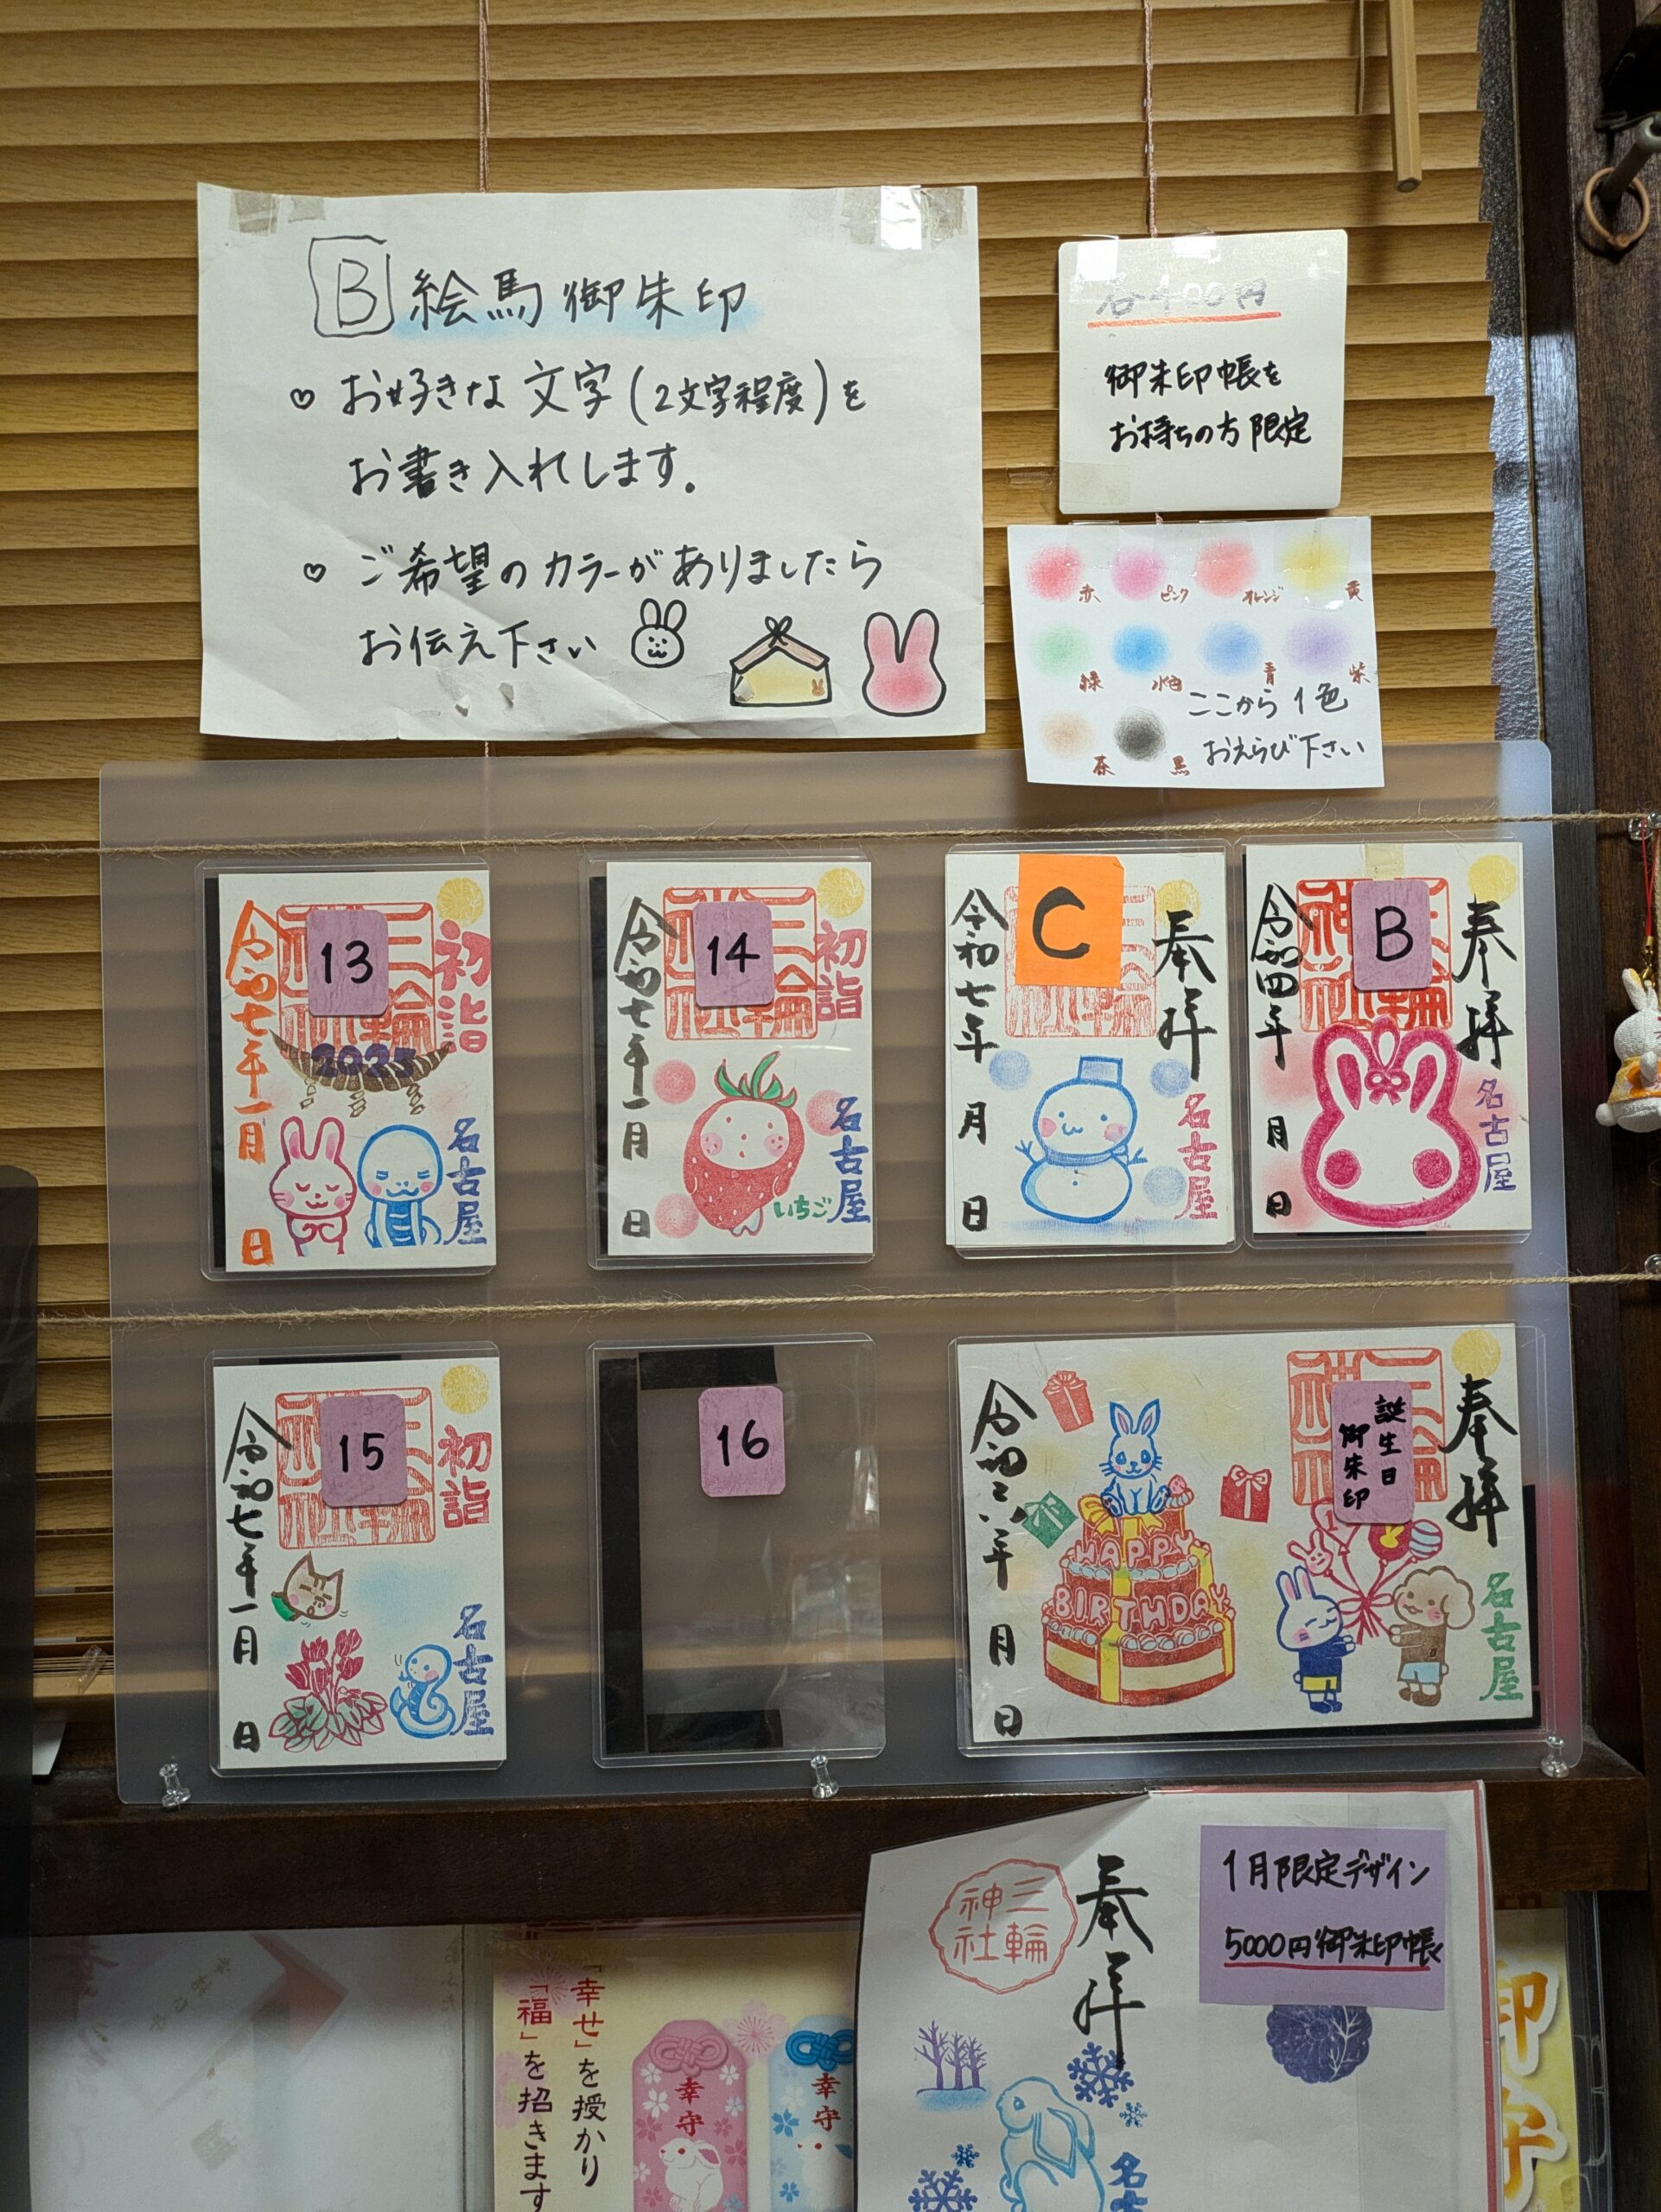 B 絵馬御朱印
♡ お好きな文字(2文字程度)を
お書き入れします。
♡ ご希望のカラーがありましたら
お伝え下さい
各400円
御朱印帳を
お持ちの方限定
赤 ピンク オレンジ 黄
緑 水色 青 紫
茶 黒
ここから1色
おえらび下さい
13
初詣
令和七年一月 日
2025
名古屋
14
初詣
令和七年一月 日
いちご
名古屋
C
奉拝
令和七年 月 日
名古屋
B
奉拝
令和四年 月 日
名古屋
15
初詣
令和七年一月 日
名古屋
16
誕生日
御朱印
奉拝
令和六年 月 日
HAPPY
BIRTHDAY
名古屋
1月限定デザイン
5000円御朱印帳
奉拝
三輪
神社
「幸せ」を授かり
「福」を招きます
幸守
幸守